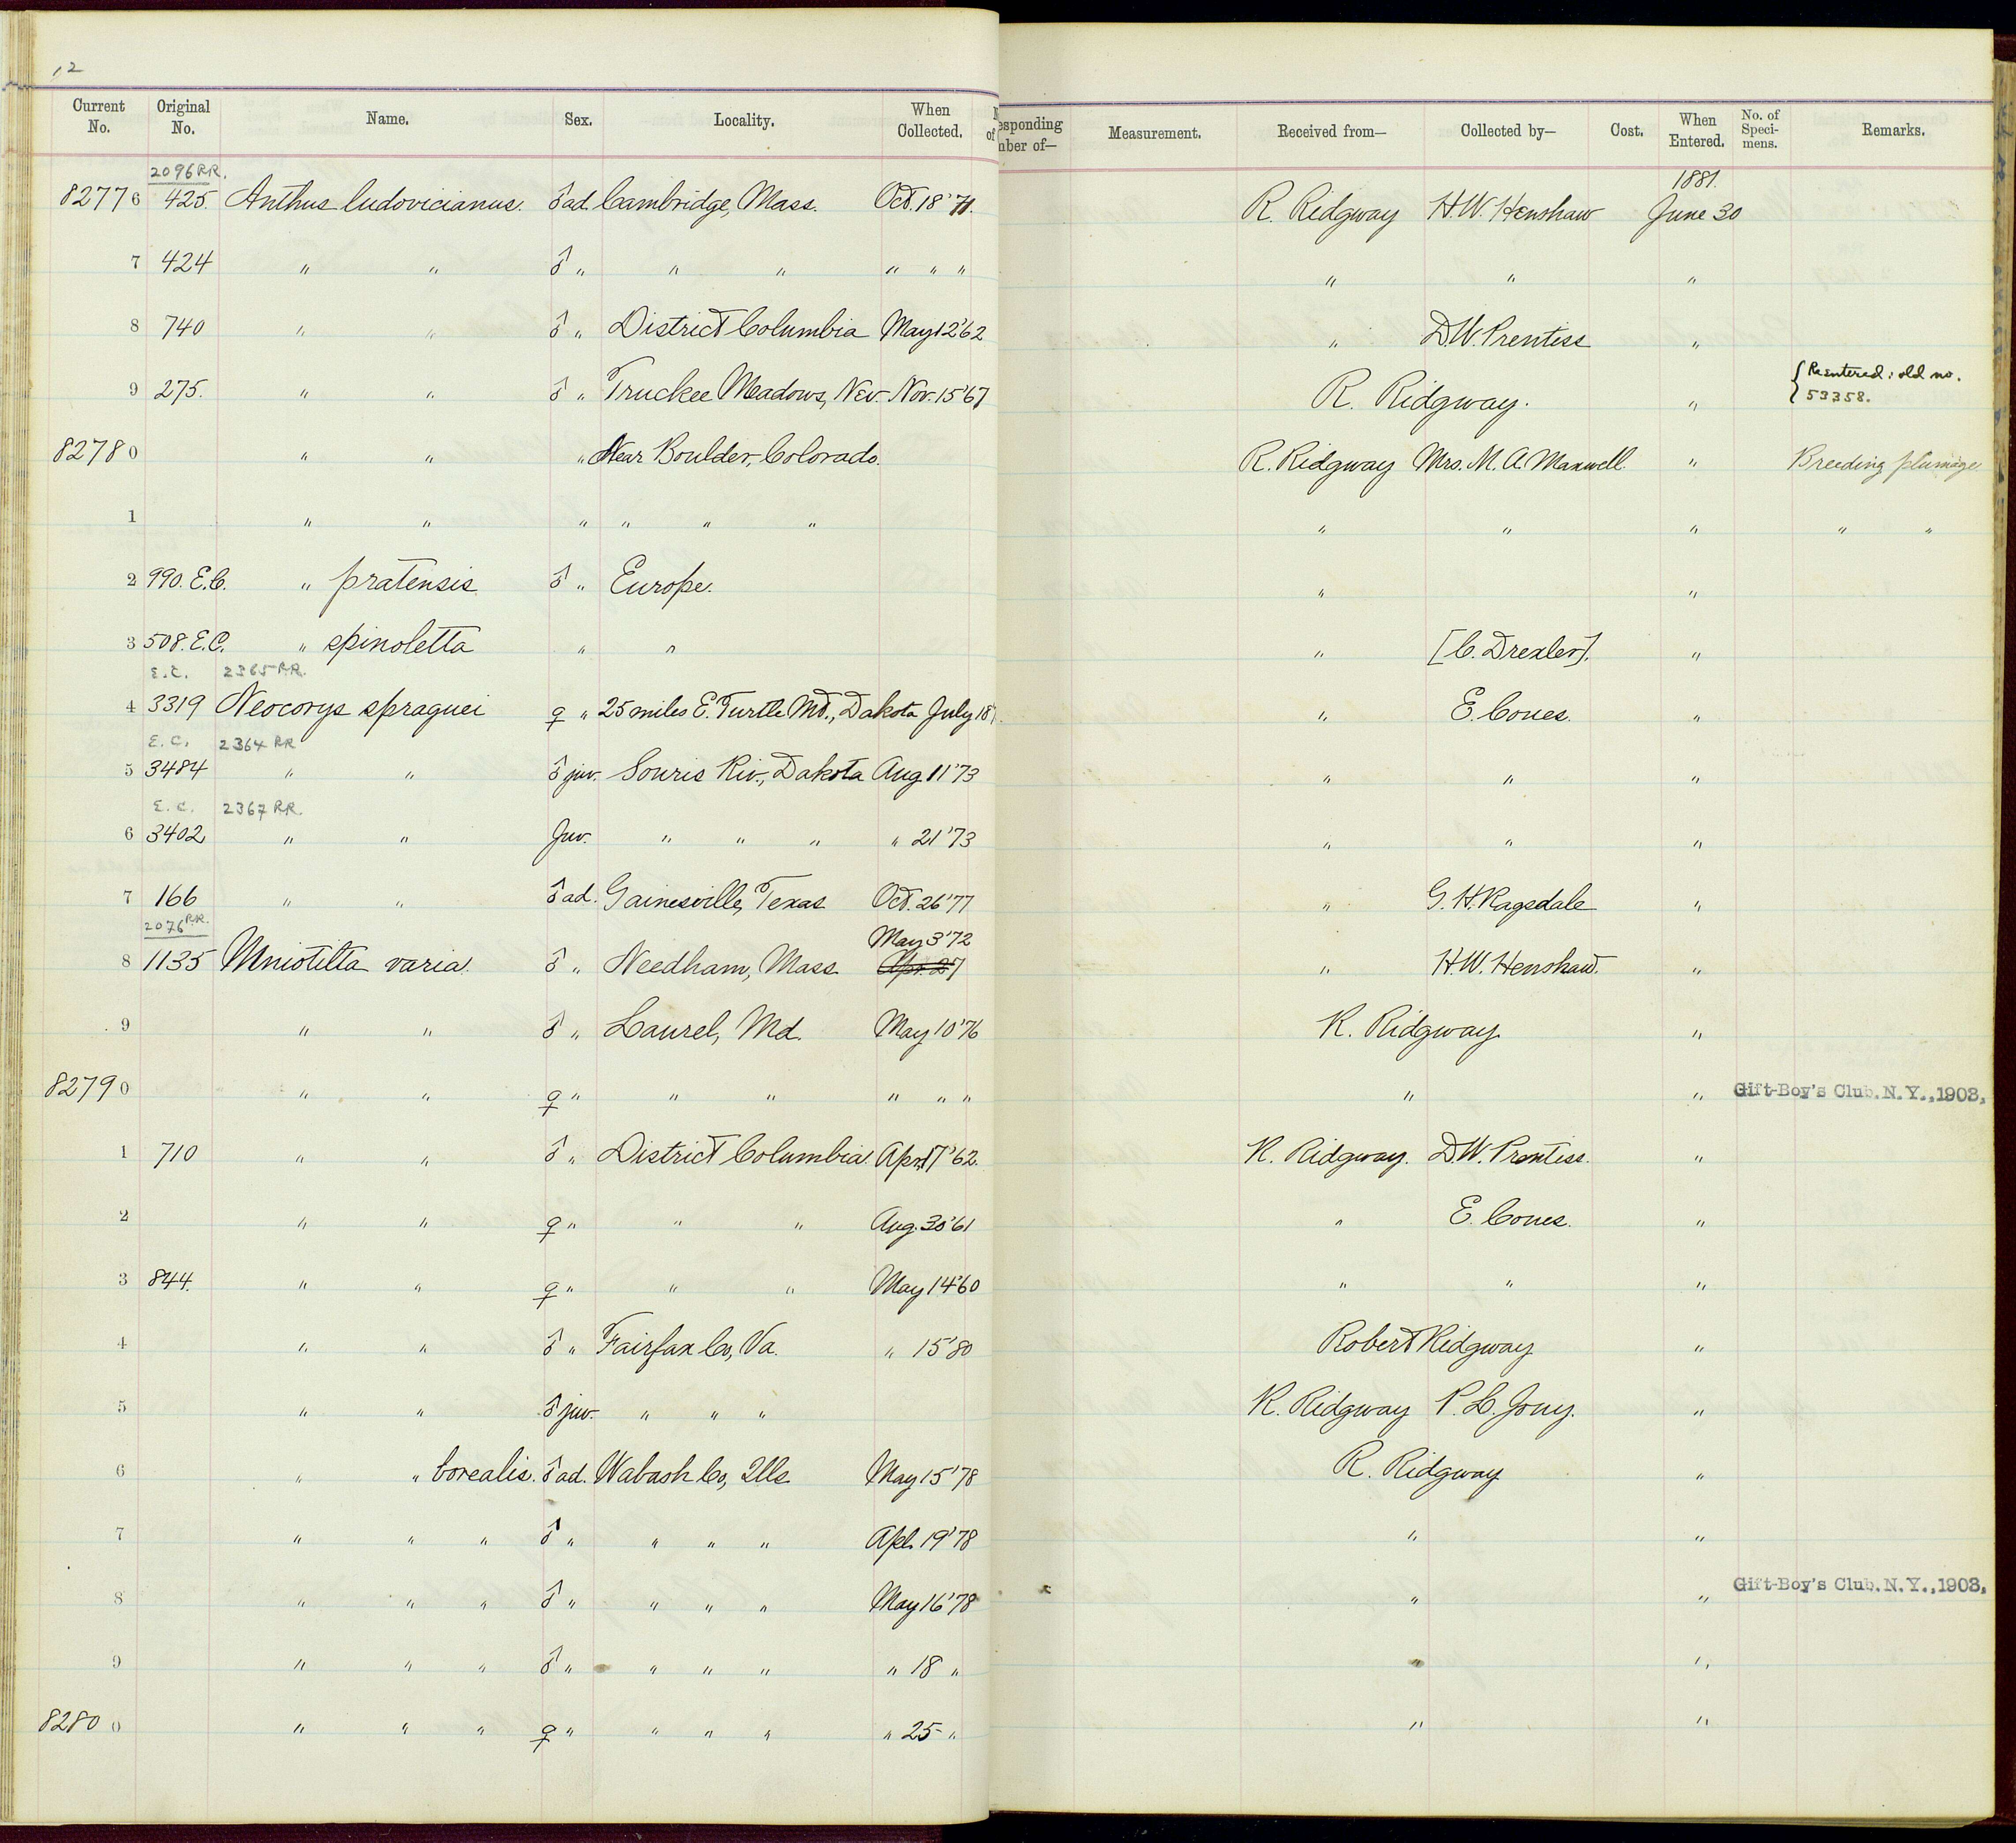 12
Current No. Original No. Name. Sex. Locality. When Collected. of esponding nber of— Measurement. Received from— Collected by— Cost. When Entered. No. of Speci-mens. Remarks.
2096 RR. 1881.
82776 425. Anthus ludovicianus. ♂ ad. Cambridge, Mass. Oct. 18 '71. R. Ridgway H.W. Henshaw June 30
7 424 " " ♂ " " " " " " " " "
8 740 " " ♂ " District Columbia May 12 '62 " D.W. Prentiss "
9 275. " " ♂ " Truckee Meadows, Nev. Nov. 15 '67 R. Ridgway. " { Reentered: old no. 53358.
82780 " " " Near Boulder, Colorado. R. Ridgway Mrs. M. A. Maxwell. " Breeding plumage
1 " " " " " " " " " " "
2 990. E.C. " pratensis ♂ " Europe. " "
3 508. E.C. " spinoletta " " " [C. Drexler]. "
E.C. 2365 RR.
4 3319 Neocorys spraguei ♀ " 25 miles E. Turtle Mt., Dakota July 18 " E. Coues. "
E.C. 2364 RR
5 3484 " " ♂ juv. Souris Riv., Dakota Aug 11 '73 " " "
E.C. 2367 RR.
6 3402 " " Juv. " " " " 21 '73 " " "
7 166 " " ♂ ad. Gainesville, Texas Oct. 26 '77 " G. H. Ragsdale "
2076 RR. May 3 '72
8 1135 Mniotilta varia. ♂ " Needham, Mass. Apr. 27 " H.W. Henshaw. "
9 " " ♂ " Laurel, Md. May 10 '76 R. Ridgway "
82790 " " ♀ " " " " " " " " Gift-Boy's Club. N.Y., 1903.
1 710 " " ♂ " District Columbia. Apr. 17 '62. R. Ridgway. D.W. Prentiss. "
2 " " ♀ " " " Aug. 30 '61 " E. Coues. "
3 844. " " ♀ " " " May 14 '60 " " "
4 " " ♂ " Fairfax Co, Va. " 15 '80 Robert Ridgway "
5 " " ♂ juv. " " " R. Ridgway P. L. Jouy. "
6 " " borealis. ♂ ad. Wabash Co, Ills May 15 '78 R. Ridgway "
7 " " " ♂ " " " " Apl. 19 '78 " "
8 " " " ♂ " " " " May 16 '78 " " Gift-Boy's Club. N.Y., 1903.
9 " " " ♂ " " " " " 18 " " "
82800 " " " ♀ " " " " " 25 " " "